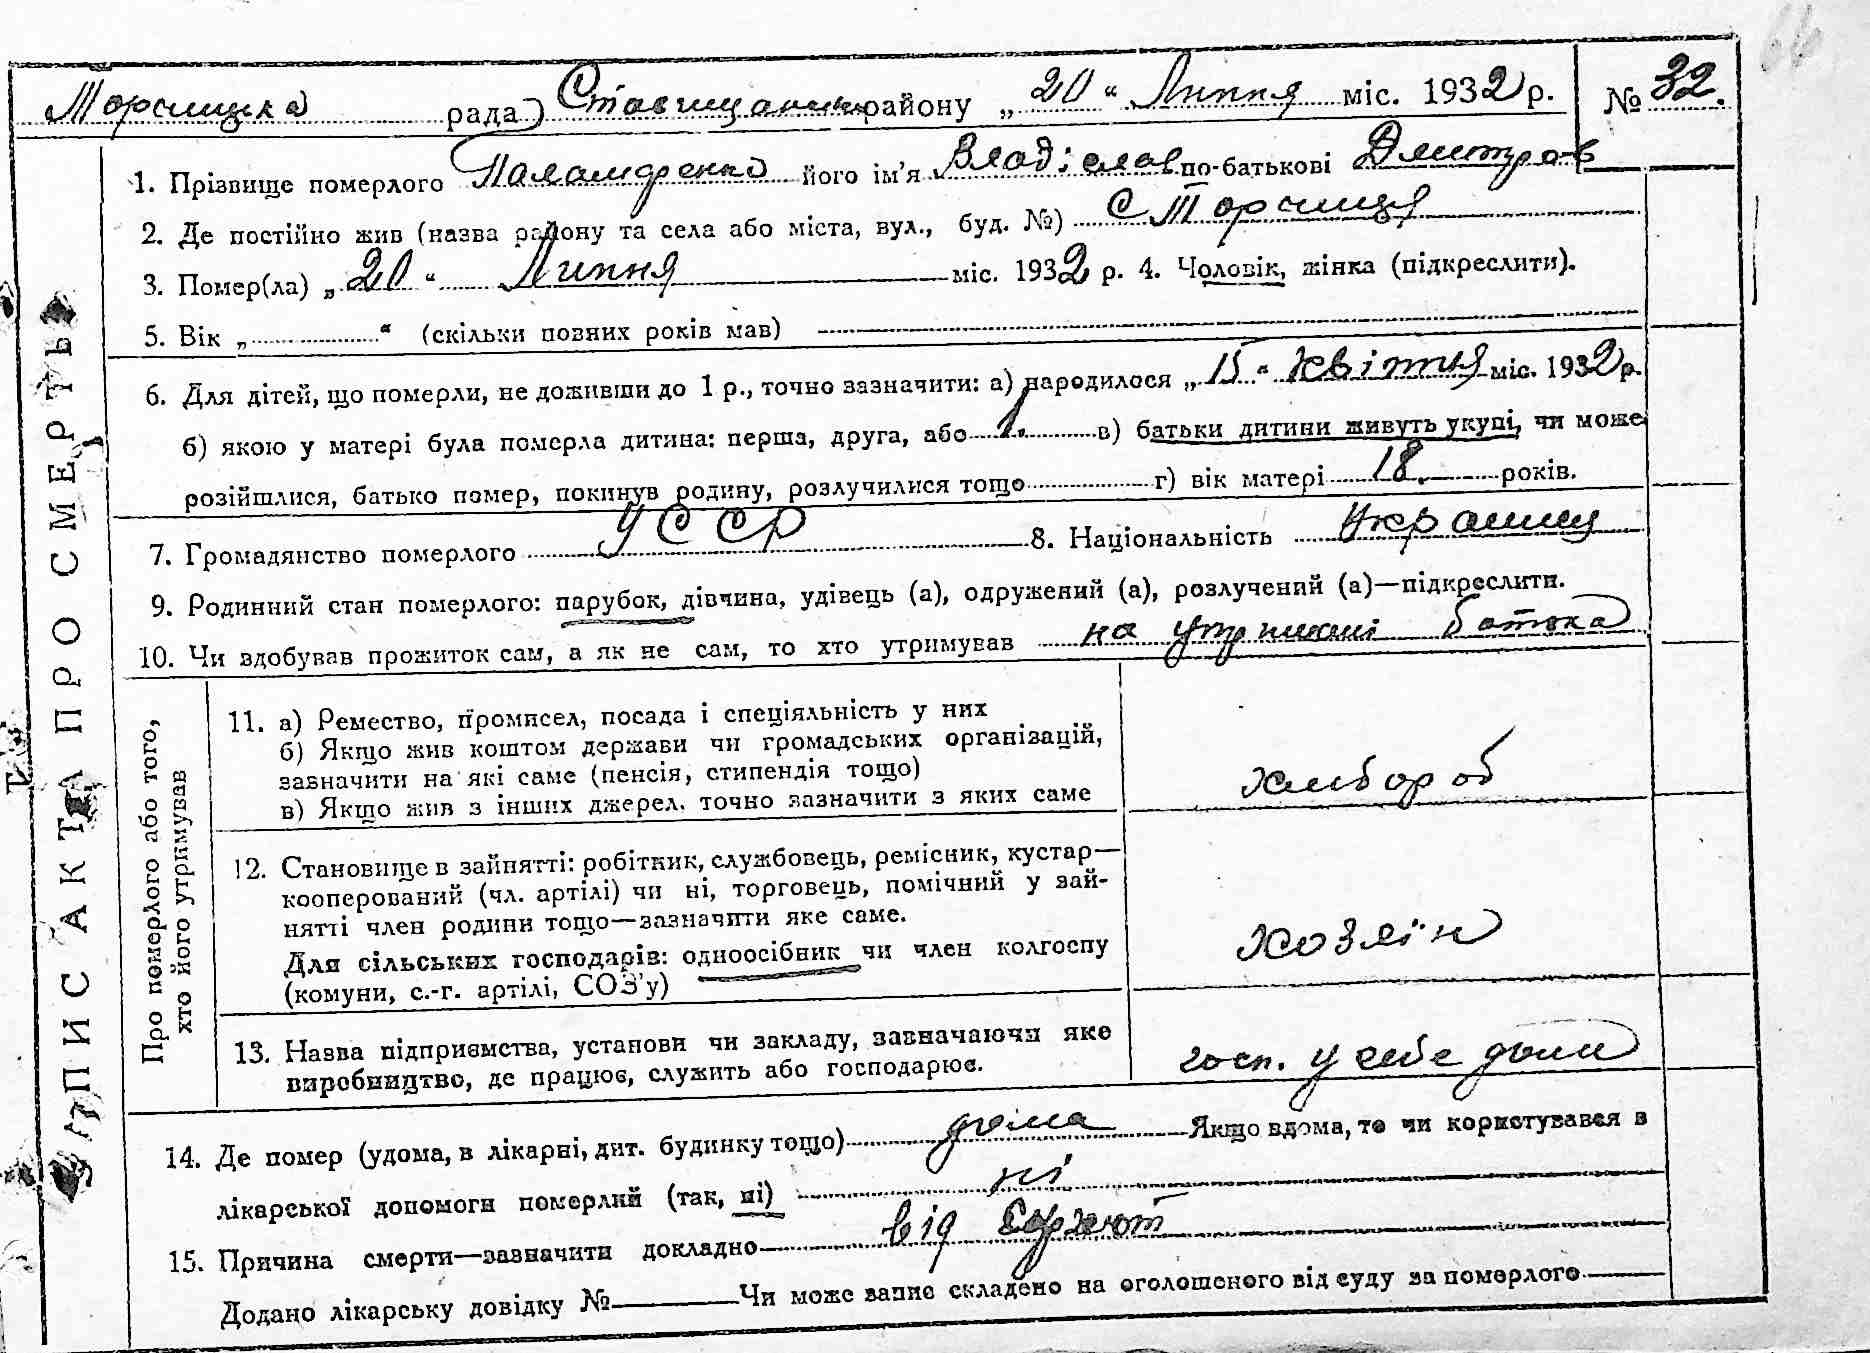 66
Торчицька рада Ставищанськ району „20“ Липня міс. 1932 р. № 32.
ЗАПИС АКТА ПРО СМЕРТЬ
1. Прізвище померлого Паламаренко його ім’я Владіслав по-батькові Дмитров
2. Де постійно жив (назва району та села або міста, вул., буд. №) С Торчиця
3. Помер(ла) „20“ Липня міс. 1932 р. 4. Чоловік, жінка (підкреслити).
5. Вік „ “ (скільки повних років мав)
6. Для дітей, що померли, не доживши до 1 р., точно зазначити: а) народилося „15“ квітня міс. 1932 р.
б) якою у матері була померла дитина: перша, друга, або 1. в) батьки дитини живуть укупі, чи може
розійшлися, батько помер, покинув родину, розлучилися тощо г) вік матері 18. років.
7. Громадянство померлого УССР 8. Національність Украинец
9. Родинний стан померлого: парубок, дівчина, удівець (а), одружений (а), розлучений (а)—підкреслити.
10. Чи здобував прожиток сам, а як не сам, то хто утримував на утриманні батька
Про померлого або того,
хто його утримував
11. а) Ремество, промисел, посада і спеціяльність у них
б) Якщо жив коштом держави чи громадських організацій,
зазначити на які саме (пенсія, стипендія тощо)
в) Якщо жив з інших джерел. точно зазначити з яких саме
хлибороб
12. Становище в зайнятті: робітник, службовець, ремісник, кустар—
кооперований (чл. артілі) чи ні, торговець, помічний у зай-
нятті член родини тощо—зазначити яке саме.
Для сільських господарів: одноосібник чи член колгоспу
(комуни, с.-г. артілі, СОЗ’у)
хозяін
13. Назва підприємства, установи чи закладу, зазначаючи яке
виробництво, де працює, служить або господарює.
госп. у себе дома
14. Де помер (удома, в лікарні, дит. будинку тощо) дома Якщо вдома, то чи користувався в
лікарської допомоги померлий (так, ні) ні
15. Причина смерти—зазначити докладно від
Додано лікарську довідку № Чи може запис складено на оголошеного від суду за померлого